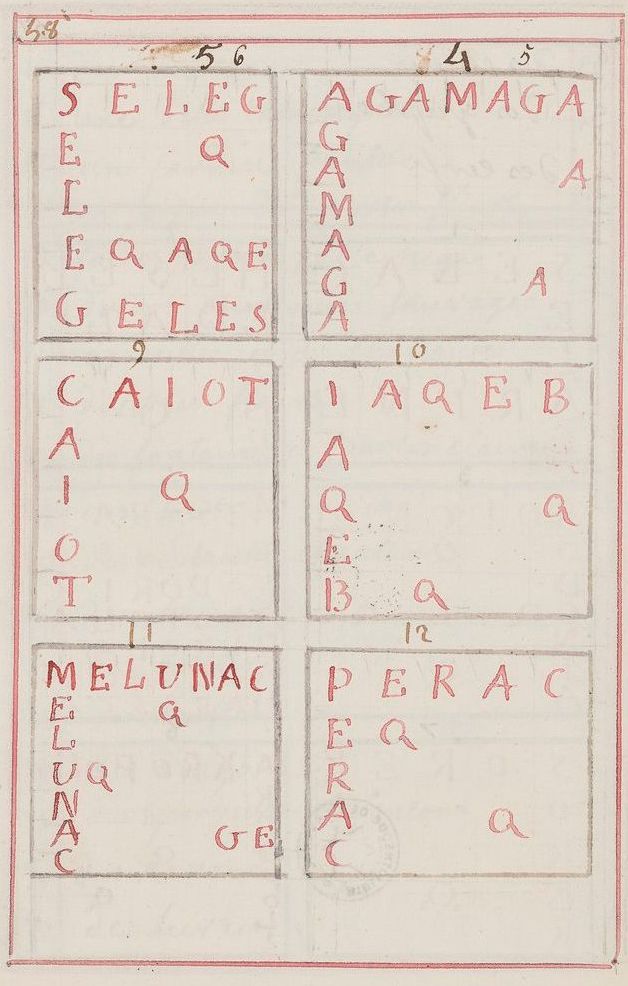 5 6
SELEG
E Q
L
E Q A Q E
GELES
4 5
AGAMAGA
G
A A
M
A
G A
A
9
CAIOT
A
I Q
O
T
10
IAQEB
A
Q Q
E
B Q
11
MELUNAC
E Q
L
U Q
N
A GE
C
12
PERAC
E Q
R
A Q
C